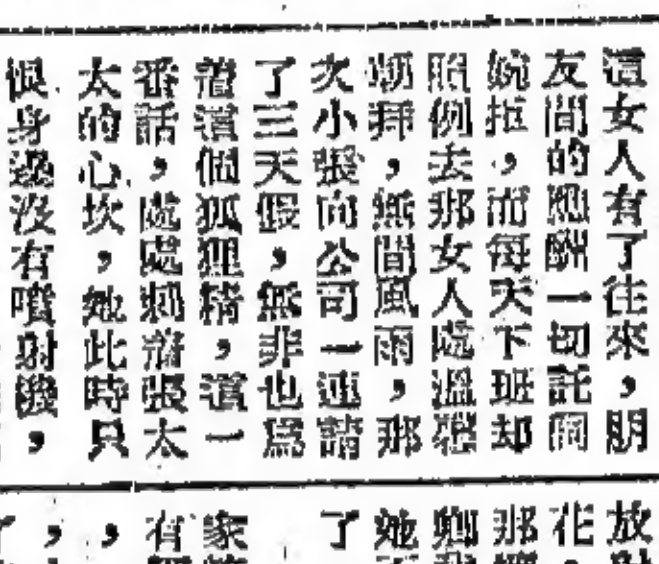 這女人有了往來，朋
友間的應酬一切託詞
婉拒，而每天下班却
照例去那女人處溫存
朝拜，無間風雨，那
次小張向公司一連請
了三天假，無非也爲
着這個狐狸精，這一
番話，處處刺着張太
太的心坎，她此時只
恨身邊沒有噴射機，
放
花
那
她
了
家
有